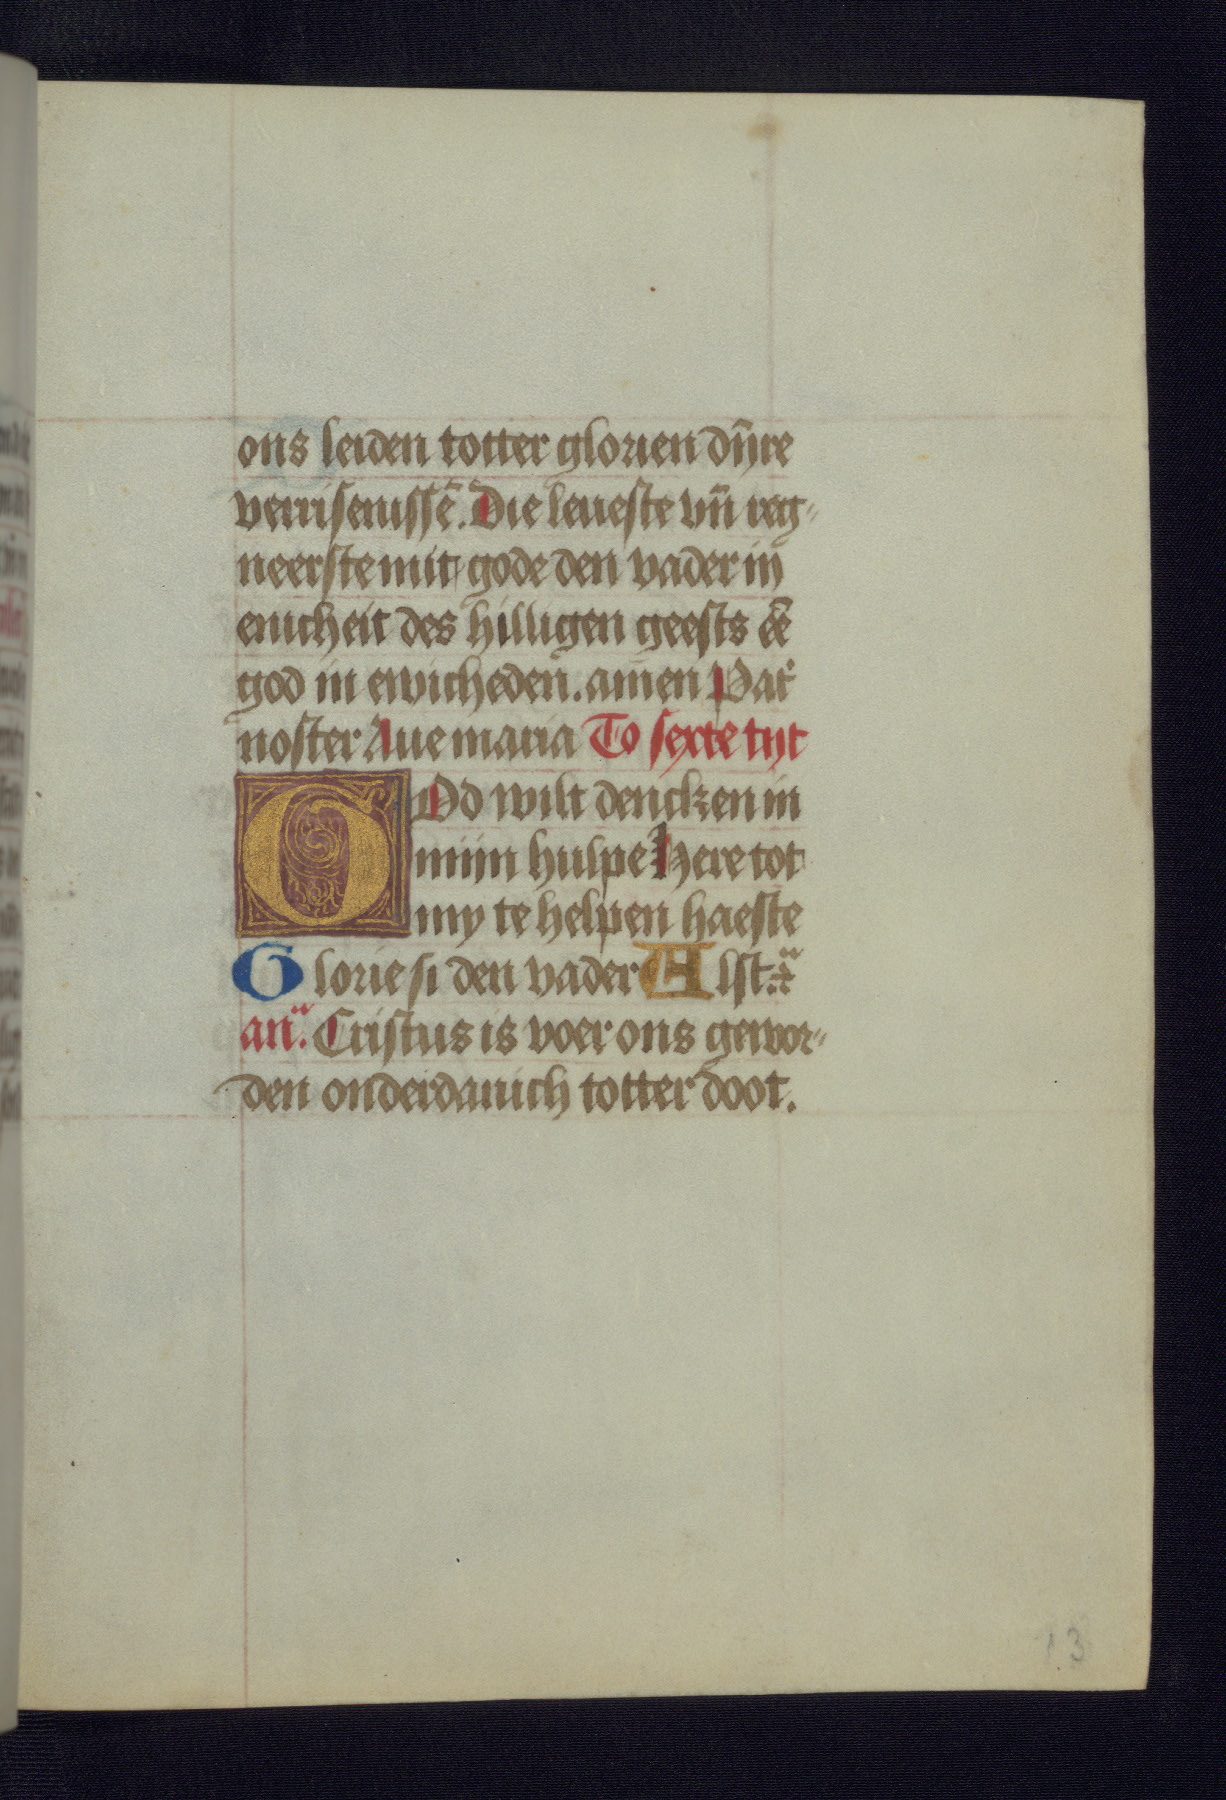 ons leiden totter glorien dijre
verrisenissē. Die leueste vn̄ reg-
neerste mit gode den vader in
enicheit des hilligen geests ēē
god in ewicheden. amen Pat̄
noster Aue maria To sexte tijt
GOd wilt dencken in
mijn hulpe Here tot
my te helpen haeste
Glorie si den vader Alst.
an̄. Cristus is voer ons gewor-
den onderdanich totter doot.
13